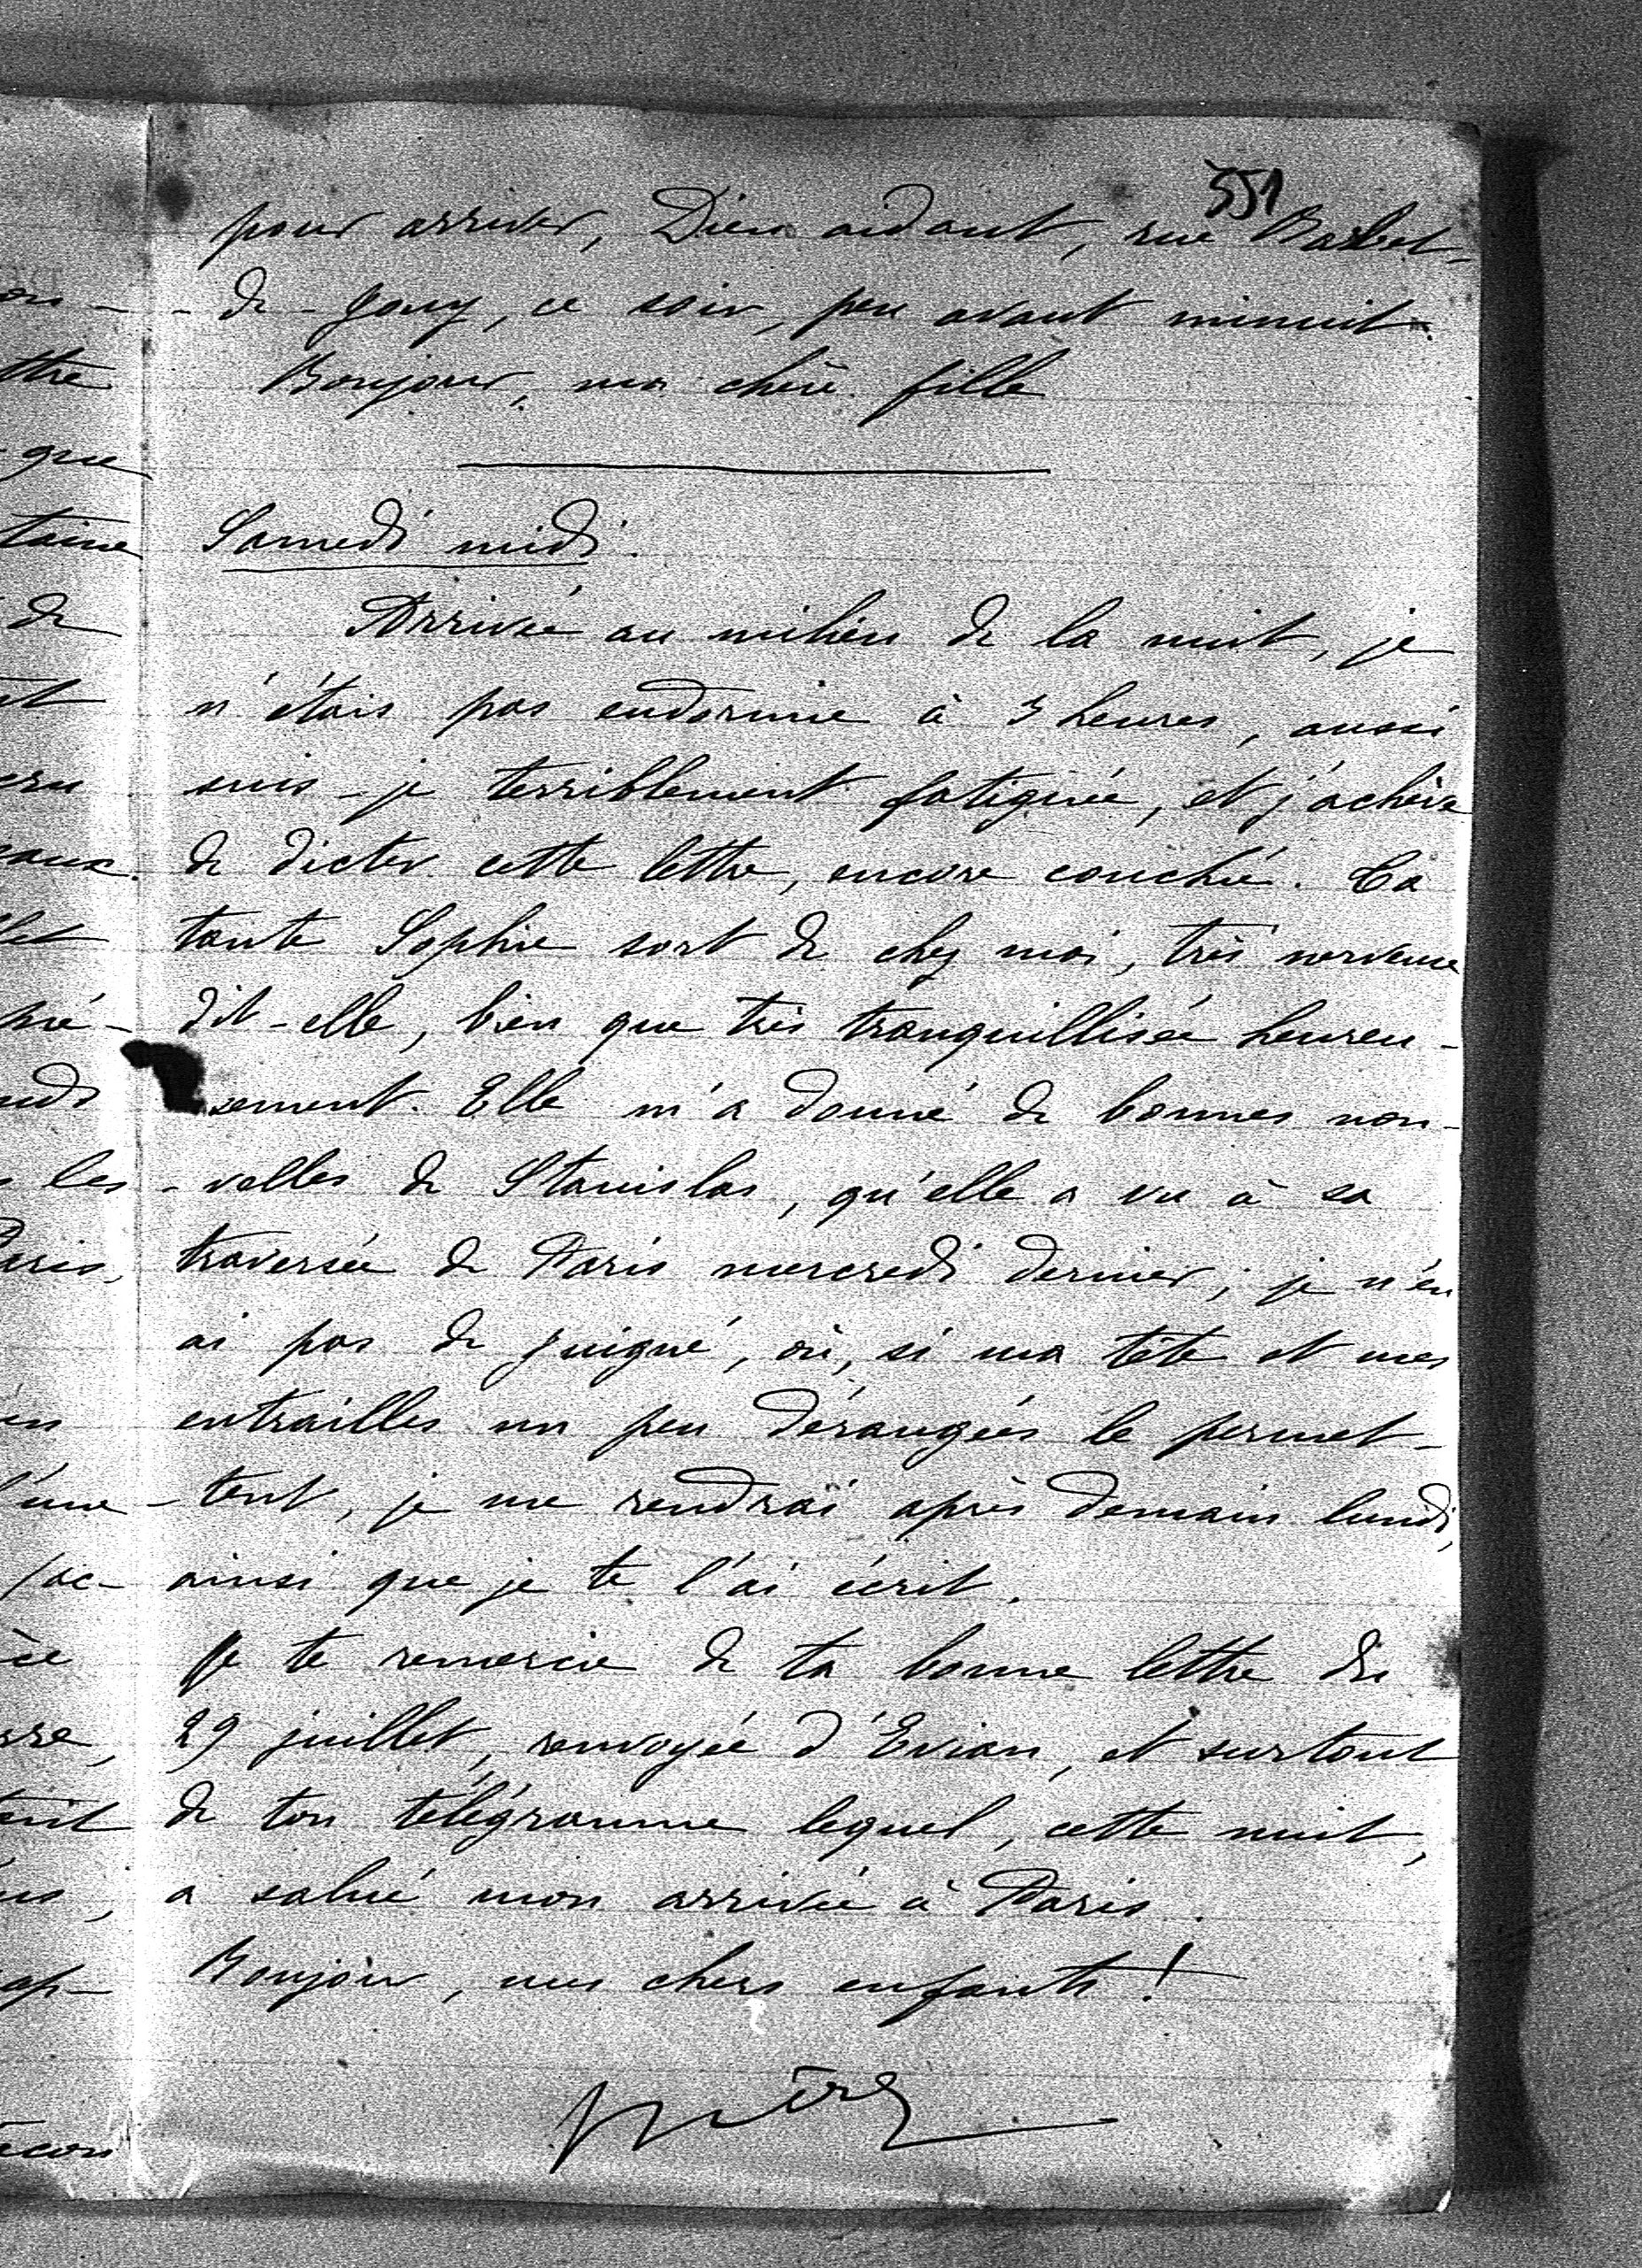 551
pour arriver, Dieu aidant, rue Barbet-
-de-Jouy, ce soir, peu avant minuit.
Bonjour, ma chère fille
Samedi midi.
Arrivée au milieu de la nuit, je
n'étais pas endormie à 3 heures, aussi
suis-je terriblement fatiguée, et j'achève
de dicter cette lettre, encore couchée. Ta
tante Sophie sort de chez moi, très nerveuse
dit-elle, bien que très tranquillisée heureu-
sement. Elle m'a donné de bonnes nou-
-velles de Stanislas, qu'elle a vu à sa
traversée de Paris mercredi dernier; je n'en
ai pas de Juigné, où, si ma tête et mes
entrailles un peu dérangées le permet-
-tent, je me rendrai après demain lundi,
ainsi que je te l'ai écrit.
Je te remercie de ta bonne lettre du
29 juillet, renvoyée d'Evian, et surtout
de ton télégramme lequel, cette nuit,
a salué mon arrivée à Paris.
Bonjour, mes chers enfants!